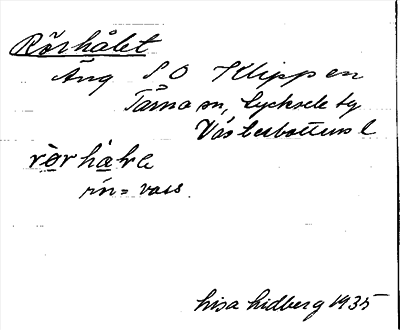 Rörhålet
Äng S O Klippen
Tärna sn, Lycksele tg
Västerbottens l
rör = vass
Lisa Lidberg 1935